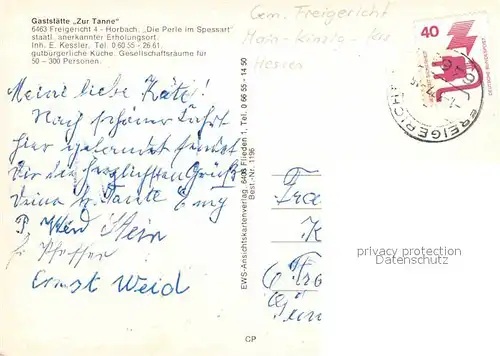 Gaststätte „Zur Tanne"
6463 Freigericht 4 - Horbach. „Die Perle im Spessart"
staatl. anerkannter Erholungsort.
Inh. E. Kessler. Tel. 0 60 55 - 26 61
gutbürgerliche Küche. Gesellschaftsräume für
50 – 300 Personen.
Gem. Freigericht
Main-Kinzig-Krs
Hessen
40
DEUTSCHE BUNDESPOST
FREIGERICHT
Meine liebe Käte!
Nach schöner Fahrt
hier gelandet sendet
Dir die herzlichsten Grüße
Deine Tante Emy
Stein
Pfeffer
Ernst Weid
EWS-Ansichtskartenverlag, 6405 Flieden 1, Tel. 0 66 55 - 14 50
Best.-Nr. 1196
Fra
K
6 Fr
CP
privacy protection
Datenschutz